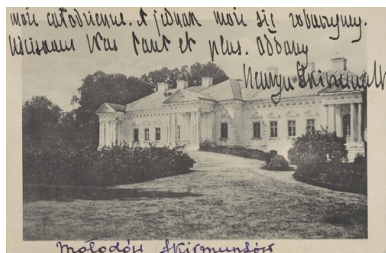 moje całodzienne. A jednak moje się zobaczymy.
Ściskam Was tant et plus. Oddany
Henryk Skirmuntt
Mołodów Skirmuntów